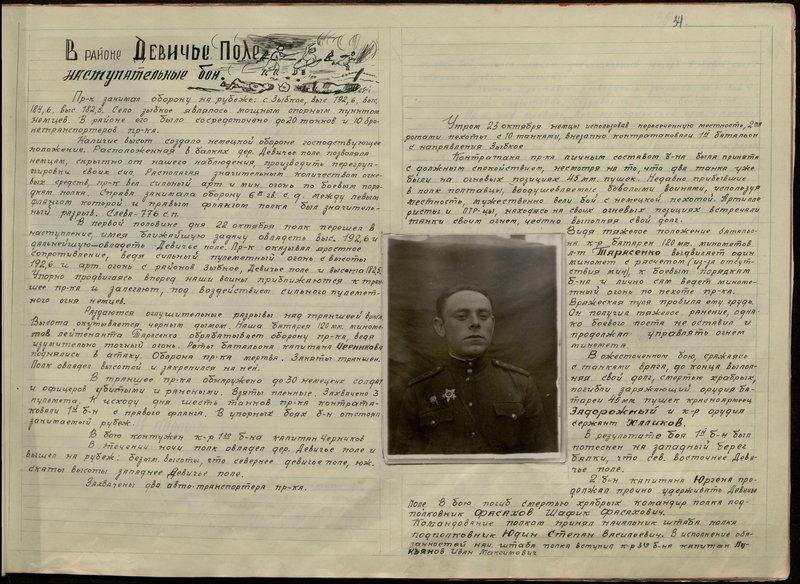 34
В РАЙОНЕ ДЕВИЧЬЕ ПОЛЕ
НАСТУПАТЕЛЬНЫЕ БОИ.
Пр-к занимал оборону на рубеже: с. Зыбкое, выс. 192,6, выс.
184,6, выс. 182,5. Село Зыбкое являлось мощным опорным пунктом
немцев. В районе его было сосредоточено до 20 танков и 10 бро-
нетранспортеров пр-ка.
Наличие высот создало немецкой обороне господствующее
положение. Расположенная в балках дер. Девичье поле позволяла
немцам, скрытно от нашего наблюдения производить перегруп-
пировки своих сил. Располагая значительным количеством огне-
вых средств, пр-к вел сильный арт. и мин. огонь по боевым поряд-
кам полка. Справа занимала оборону 6я гв. с.д. между левым
флангом которой и правым флангом полка был значитель-
ный разрыв. Слева - 776 с.п.
В первой половине дня 22 октября полк перешел в
наступление, имея ближайшую задачу овладеть выс. 192,6 и
дальнейшую - овладеть Девичье поле. Пр-к оказывал яростное
сопротивление, ведя сильный пулеметный огонь с высоты
192,6 и арт. огонь с районов Зыбкое, Девичье поле и высота 182,5.
Упорно продвигаясь вперед наши воины приближаются к тран-
шее пр-ка и залегают, под воздействием сильного пулемет-
ного огня немцев.
Раздаются оглушительные разрывы над траншеей врага.
Высота окутывается черным дымом. Наша батарея 120 мм. миноме-
тов лейтенанта Тарасенко обрабатывает оборону пр-ка, ведя
изумительно точный огонь. Роты батальона капитана Черникова
поднялись в атаку. Оборона пр-ка мертва. Заняты траншеи.
Полк овладел высотой и закрепился на ней.
В траншее пр-ка обнаружено до 30 немецких солдат
и офицеров убитыми и ранеными. Взяты пленные. Захвачено 3
пулемета. К исходу дня шесть танков пр-ка контрата-
ковали 1й б-н с правого фланга. В упорных боях б-н отстоял
занимаемый рубеж.
В бою контужен к-р 1го б-на капитан Черников
В течении ночи полк овладел дер. Девичье поле и
вышел на рубеж: безым. высоты, что севернее девичье поле, юж.
скаты высоты западнее Девичье поле.
Захвачены два авто-транспортера пр-ка.
Утром 23 октября немцы использовав пересеченную местность, 2мя
ротами пехоты с 10 танками, внезапно контратаковали 1й батальон
с направления Зыбкое
Контратака пр-ка личным составом б-на была принята
с должным спокойствием, несмотря на то, что два танка уже
были на огневых позициях 45 мм. пушек. Недавно прибывшие
в полк полтавцы, воодушевляемые бывалыми воинами, используя
местность, мужественно вели бой с немецкой пехотой. Артилле-
ристы и ПТР-цы, находясь на своих огневых позициях встречали
танки своим огнем, честно выполняя свой долг.
Видя тяжелое положение батальо-
на к-р батареи 120 мм. минометов
л-т Тарасенко выдвигает один
миномет с расчетом (из-за отсут-
ствия мин), к боевым порядкам
б-на и лично сам ведет миноме-
тный огонь по пехоте пр-ка.
Вражеская пуля пробила ему грудь.
Он получил тяжелое ранение, одна-
ко боевого поста не оставил и
продолжал управлять огнем
миномета.
В ожесточенном бою, сражаясь
с танками врага, до конца выпол-
няя свой долг, смертью храбрых,
погибли заряжающий орудия ба-
тареи 45 мм. пушек красноармеец
Задорожный и к-р орудия
сержант Жаликов.
В результате боя 1й б-н был
потеснен на западный берег
балки, что сев. восточнее Деви-
чье поле.
2 б-н капитана Юргена про-
должал прочно удерживать Девичье
поле. В бою погиб смертью храбрых командир полка под-
полковник Фасахов Шафик Фасахович.
Командование полком принял начальник штаба полка
подполковник Юдин Степан Васильевич. В исполнение обя-
занностей нач. штаба полка вступил к-р 3го б-на капитан Лу-
кьянов Иван Максимович